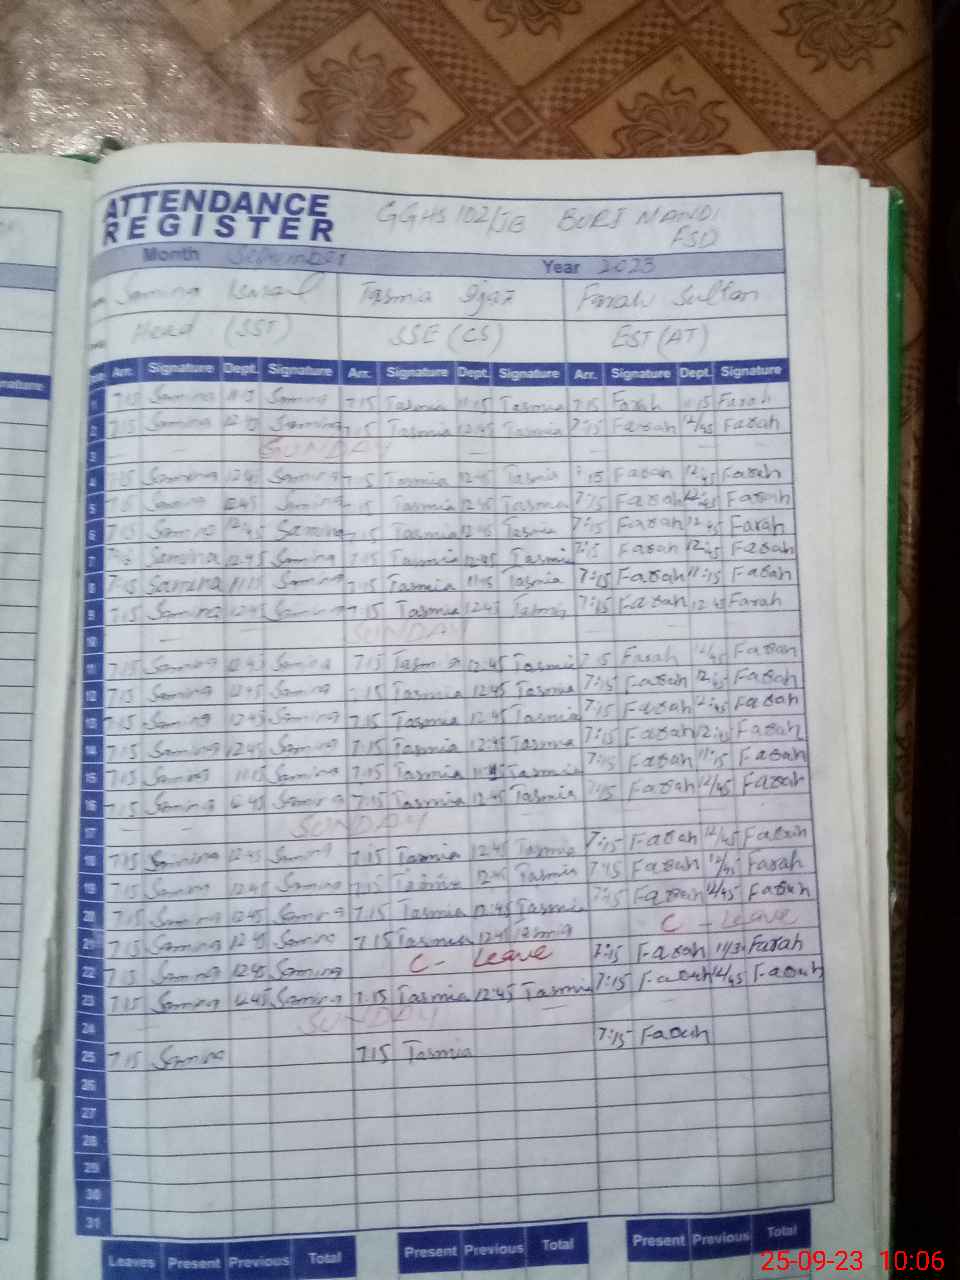 ATTENDANCE
REGISTER
GGHS 102/JB BURJ MANDI
FSD
Month September Year 2023
Samina Ismail Tasmia Ijaz Farah Sultan
Head (SST) SSE (CS) EST (AT)
nature
Arr. Signature Dept. Signature Arr. Signature Dept. Signature Arr. Signature Dept. Signature
1 7:15 Samina 11:15 Samina 7:15 Tasmia 11:15 Tasmia 7:15 Farah 11:15 Farah
2 7:15 Samina 12:45 Samina 7:15 Tasmia 12:45 Tasmia 7:15 Farah 12/45 Farah
3 — — SUNDAY — —
4 7:15 Samina 12:45 Samina 7:15 Tasmia 12:45 Tasmia 7:15 Farah 12:45 Farah
5 7:15 Samina 12:45 Samina 7:15 Tasmia 12:45 Tasmia 7:15 Farah 12:45 Farah
6 7:15 Samina 12:45 Samina 7:15 Tasmia 12:45 Tasmia 7:15 Farah 12:45 Farah
7 7:15 Samina 12:45 Samina 7:15 Tasmia 12:45 Tasmia 7:15 Farah 12:45 Farah
8 7:15 Samina 11:15 Samina 7:15 Tasmia 11:15 Tasmia 7:15 Farah 11:15 Farah
9 7:15 Samina 12:45 Samina 7:15 Tasmia 12:45 Tasmia 7:15 Farah 12:45 Farah
10 — — SUNDAY — —
11 7:15 Samina 12:45 Samina 7:15 Tasmia 12:45 Tasmia 7:15 Farah 12/45 Farah
12 7:15 Samina 12:45 Samina 7:15 Tasmia 12:45 Tasmia 7:15 Farah 12:45 Farah
13 7:15 Samina 12:45 Samina 7:15 Tasmia 12:45 Tasmia 7:15 Farah 12:45 Farah
14 7:15 Samina 12:45 Samina 7:15 Tasmia 12:45 Tasmia 7:15 Farah 12:45 Farah
15 7:15 Samina 11:15 Samina 7:15 Tasmia 11:15 Tasmia 7:15 Farah 11:15 Farah
16 7:15 Samina 12:45 Samina 7:15 Tasmia 12:45 Tasmia 7:15 Farah 12/45 Farah
17 — — SUNDAY
18 7:15 Samina 12:45 Samina 7:15 Tasmia 12:45 Tasmia 7:15 Farah 12/45 Farah
19 7:15 Samina 12:45 Samina 7:15 Tasmia 12:45 Tasmia 7:15 Farah 12/45 Farah
20 7:15 Samina 12:45 Samina 7:15 Tasmia 12:45 Tasmia 7:15 Farah 12/45 Farah
21 7:15 Samina 12:45 Samina 7:15 Tasmia 12:45 Tasmia C - Leave
22 7:15 Samina 12:45 Samina C - Leave 7:15 Farah Farah
23 7:15 Samina 12:45 Samina 7:15 Tasmia 12:45 Tasmia 7:15 Farah 12/45 Farah
24 — SUNDAY — —
25 7:15 Samina 7:15 Tasmia 7:15 Farah
26
27
28
29
30
31
Leaves Present Previous Total Present Previous Total Present Previous Total
25-09-23 10:06